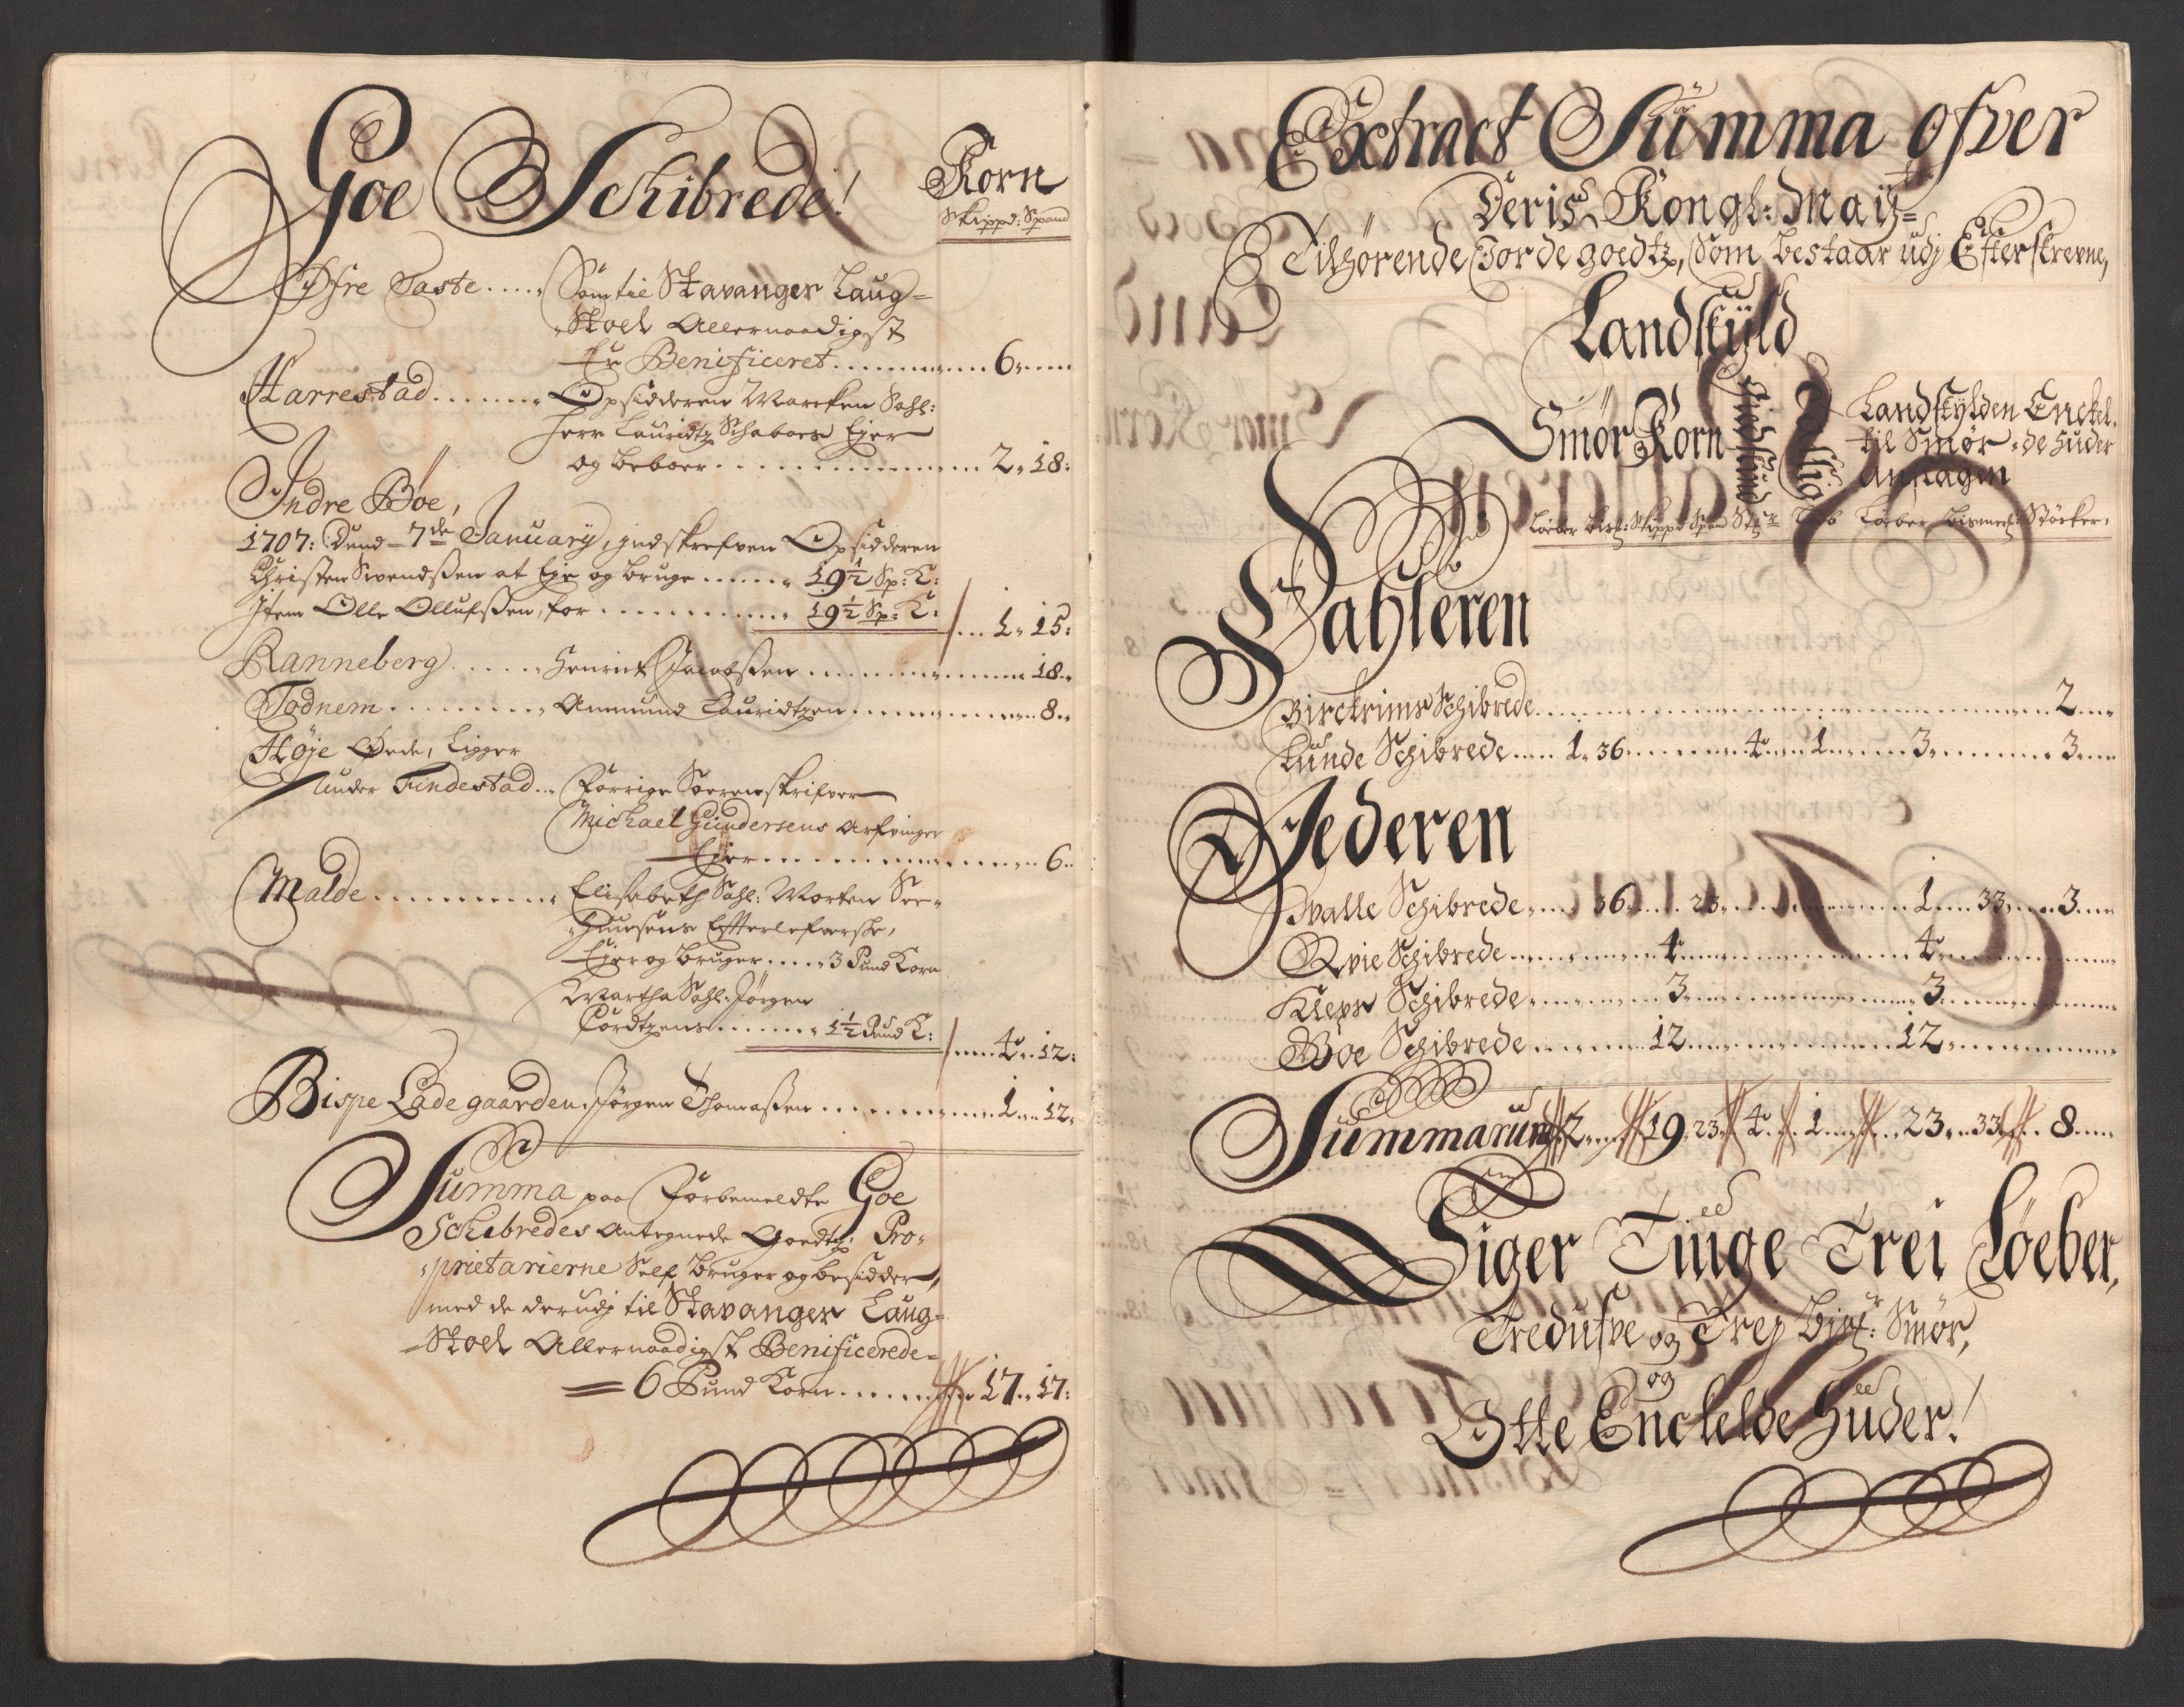 Goe Schibrede!
Korn
Skippd: Spand
Øfre Taste..... Som til Stavanger Laug-
Stoel Allernaadigst
Er Benificeret............ 6
Harrestad........ Opsidderen Marken Sahl:
Herr Lauridtz Schaboes Ejer
og beboer............... 2.. 18:
Indre Bøe,
1707: Dend 7de January, indskrefven Opsidderen
Christen Svendßen at Eje og bruge...... 19½ Sp: K:
Item Olle Ollufßen, for........... 19½ Sp: K: ... 1.. 15:
Ranneberg...... Henrich Jacobßen............ 18..
Todnem......... Ammund Lauridtzen............ 8..
Høje Øede, Ligger
under Findestad... Forrige Sorenskrifver
Michael Gundersens Arfvinger
Ejer............ 6..
Malde............ Elisabeth Sahl: Morten See-
husens Efterlefverske,
Ejer og bruger..... 3 Pund Korn
Martha Sahl: Jörgen
Cordtzens....... 1½ Pund K: .... 4.. 12:
Bispe Ladegaarden. Jörgen Thomaßen............ 1... 12.
Summa paa Forbemeldte Goe
Schibredes Antegnede Goedtz: Pro-
prietarierne Self bruger og besidder,
med de derudj til Stavanger Laug-
Stoel Allernaadigst Benificerede
6 Pund Korn....... 17.. 17:
Extract Summa ofver
Deris Kongl: Mayts
Tilhørende Jordegoedtz, som bestaar udj Efterskrevne,
Landskyld
Smør Korn Giedskind Landskylden Enckel.
til Smør, de Huder
anslagen
Løeber Bis: Skippd Spand Løeber Bismer: Störker.
Dahleren
Birckrims Schibrede............ 2
Lunde Schibrede.... 1. 36........ 4..... 1....... 3......... 3
Jederen
Hvalle Schibrede..... 36...... 23........ 1.... 33.... 3
Qvie Schibrede......... 4............ 4
Klepps Schibrede......... 3............ 3
Goe Schibrede......... 12............ 12
Summarum 2.... 19. 23. 4. 1.... 23... 33.. 8
Siger Tiuge Trei Løeber,
Tredufve og Trej Bis: Smør,
og
Otte Enckelde Huder!